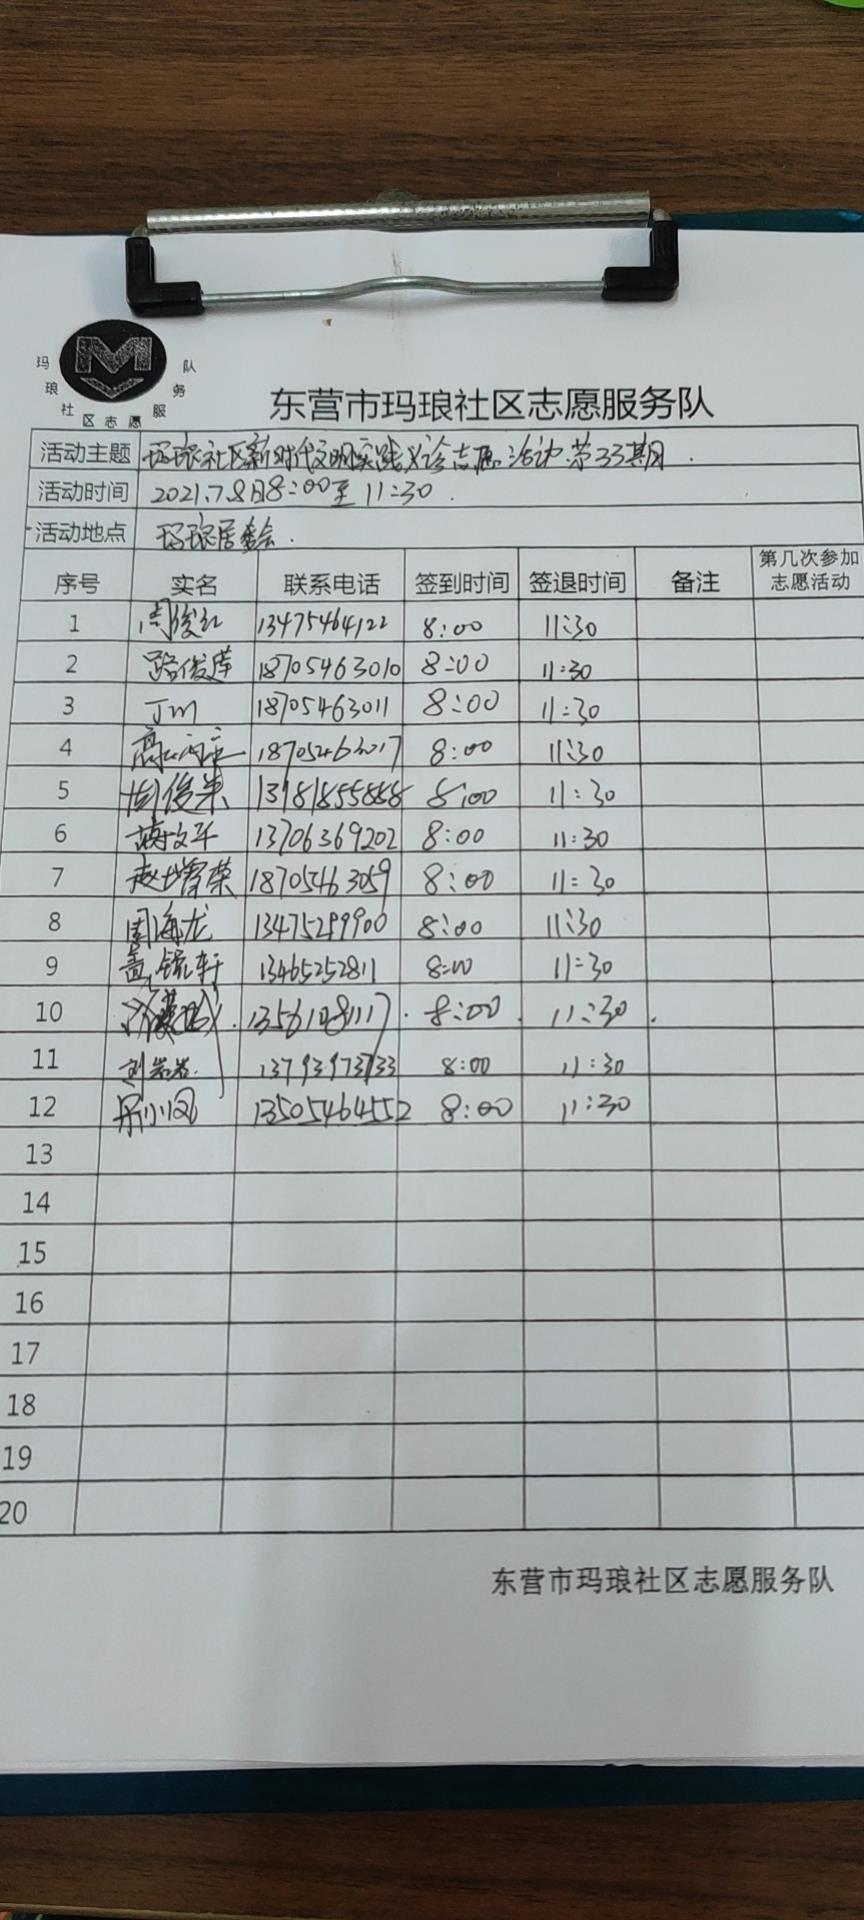 玛琅社区志愿服务队
东营市玛琅社区志愿服务队
活动主题 玛琅社区新时代文明实践义诊志愿活动.第33期.
活动时间 2021.7.8日8:00至11:30.
活动地点 玛琅居委会.
序号 实名 联系电话 签到时间 签退时间 备注 第几次参加志愿活动
1 周俊红 13475464122 8:00 11:30
2 路俊萍 18705463010 8:00 11:30
3 18705463011 8:00 11:30
4 18705463017 8:00 11:30
5 周俊荣 8:00 11:30
6 蒋文平 13706369202 8:00 11:30
7 赵增荣 18705463059 8:00 11:30
8 周海龙 13475299900 8:00 11:30
9 盖锟轩 13465252811 8:00 11:30
10 13561081117. 8:00. 11:30.
11 刘岩岩. 13793973733 8:00 11:30
12 13505464552 8:00 11:30
13
14
15
16
17
18
19
20
东营市玛琅社区志愿服务队